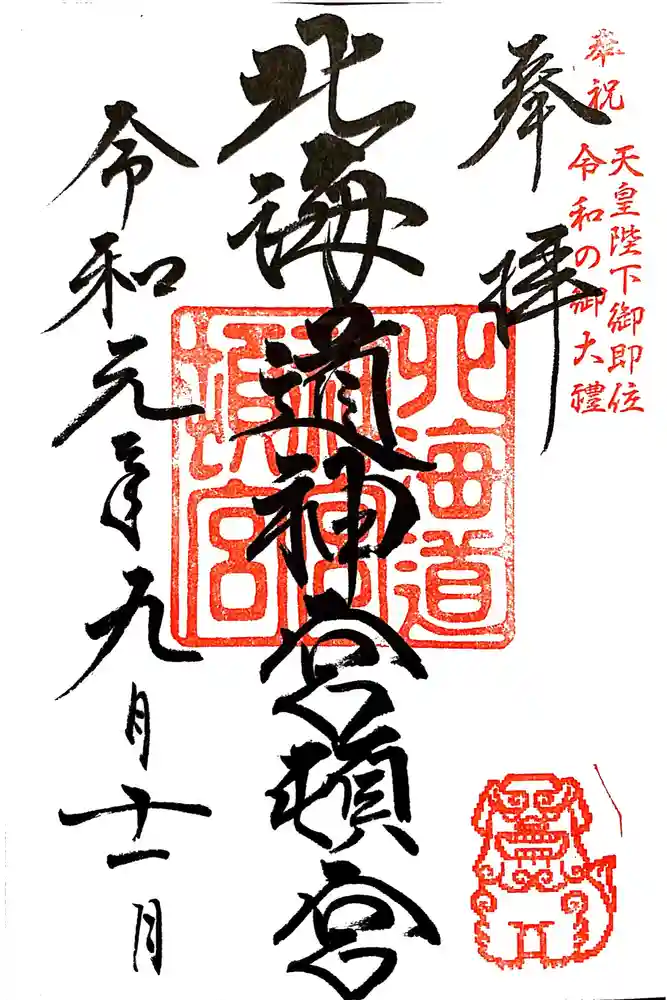 奉祝
天皇陛下御即位
令和の御大禮
奉拝
北海道神宮頓宮
令和元年九月十一月
北海道
神宮
頓宮